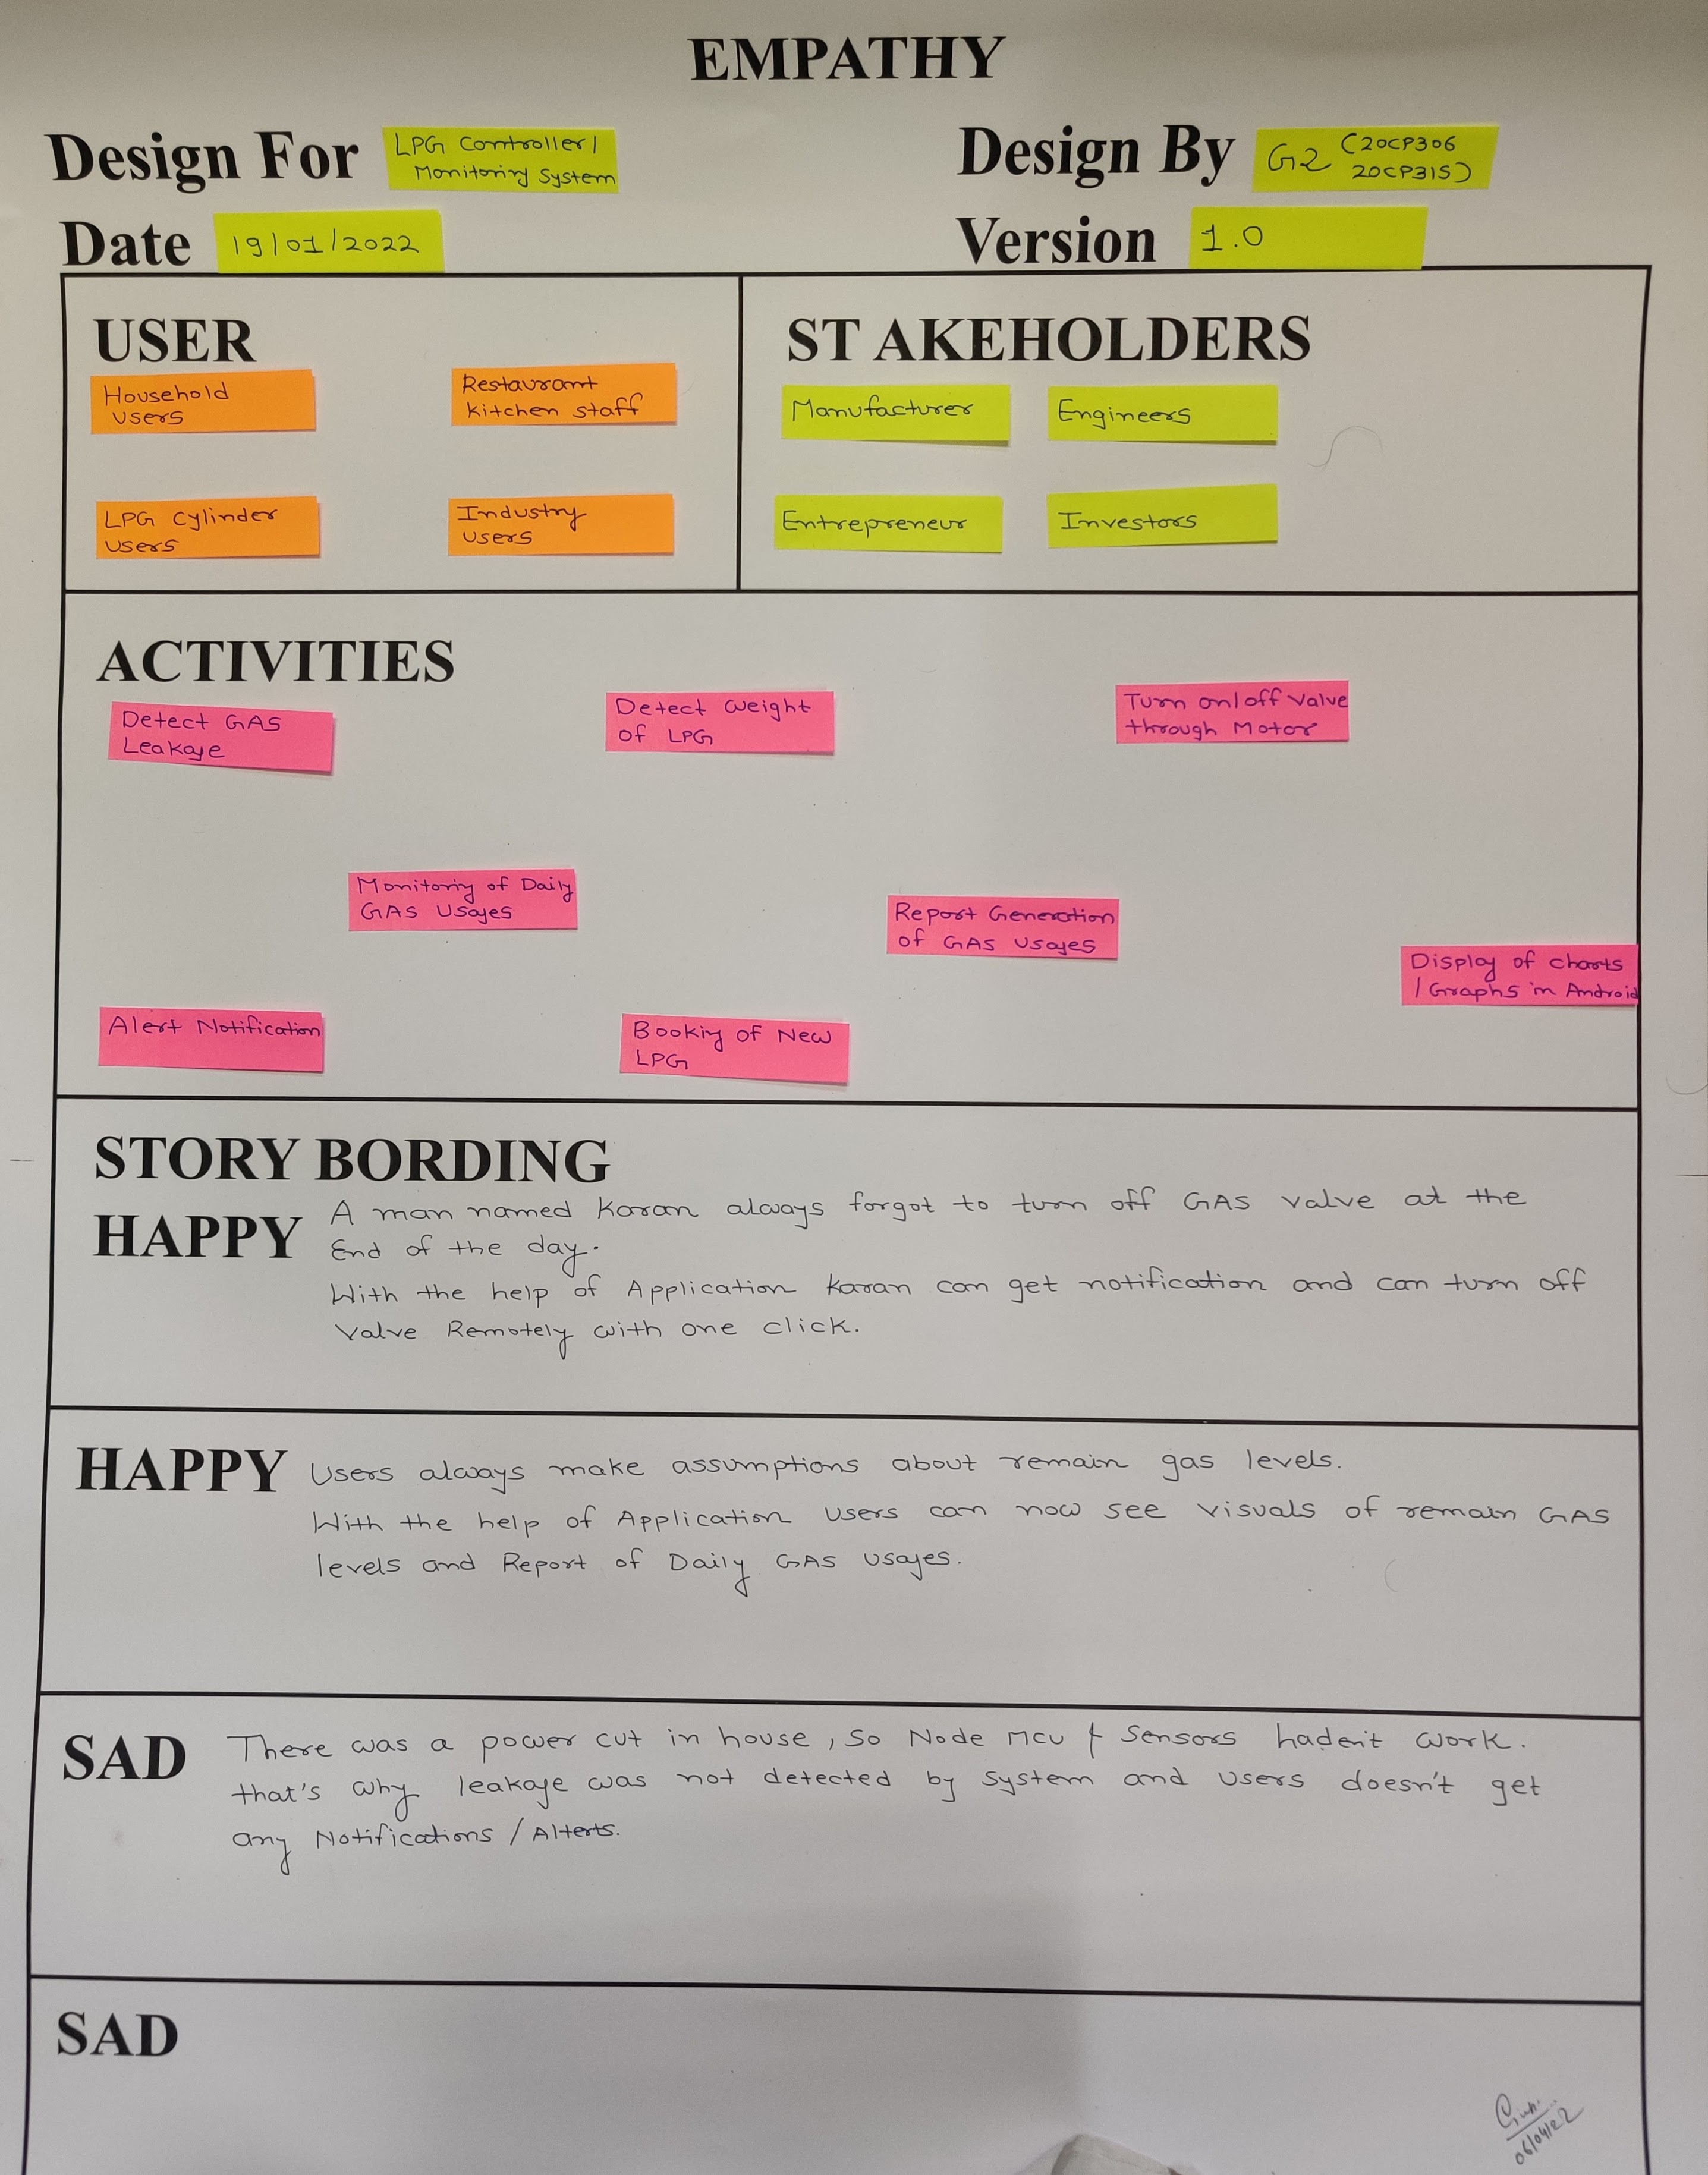 EMPATHY
Design For LPG Controller/
Monitoring System
Design By G2 (20CP306
20CP315)
Date 19/01/2022
Version 1.0
USER
Household
users
Restaurant
kitchen staff
LPG cylinder
users
Industry
users
ST AKEHOLDERS
Manufacturer
Engineers
Entrepreneur
Investors
ACTIVITIES
Detect GAS
Leakage
Detect weight
of LPG
Turn on/off valve
through Motor
Monitoring of Daily
GAS Usages
Report Generation
of GAS usages
Display of charts
/Graphs in Android
Alert Notification
Booking of New
LPG
STORY BORDING
HAPPY A man named Karan always forgot to turn off GAS valve at the
End of the day.
With the help of Application Karan can get notification and can turn off
valve Remotely with one click.
HAPPY Users always make assumptions about remain gas levels.
With the help of Application users can now see visuals of remain GAS
levels and Report of Daily GAS usages.
SAD There was a power cut in house, so Node MCU & Sensors haden't work.
that's why leakage was not detected by system and users doesn't get
any Notifications / Alterts.
SAD
06/04/22